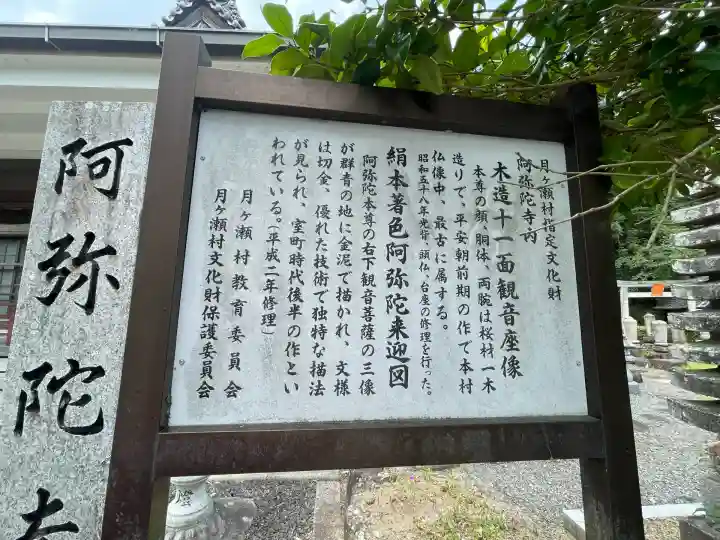 月ヶ瀬村指定文化財
阿弥陀寺内
木造十一面観音座像
本尊の顔、胴体、両腕は桜材一木
造りで、平安朝前期の作で本村
仏像中、最古に属する。
昭和五十八年光背、頭仏、台座の修理を行った。
絹本著色阿弥陀来迎図
阿弥陀本尊の右下観音菩薩の三像
が群青の地に金泥で描かれ、文様
は切金、優れた技術で独特な描法
が見られ、室町時代後半の作とい
われている。(平成二年修理)
月ヶ瀬村教育委員会
月ヶ瀬村文化財保護委員会
阿弥陀寺